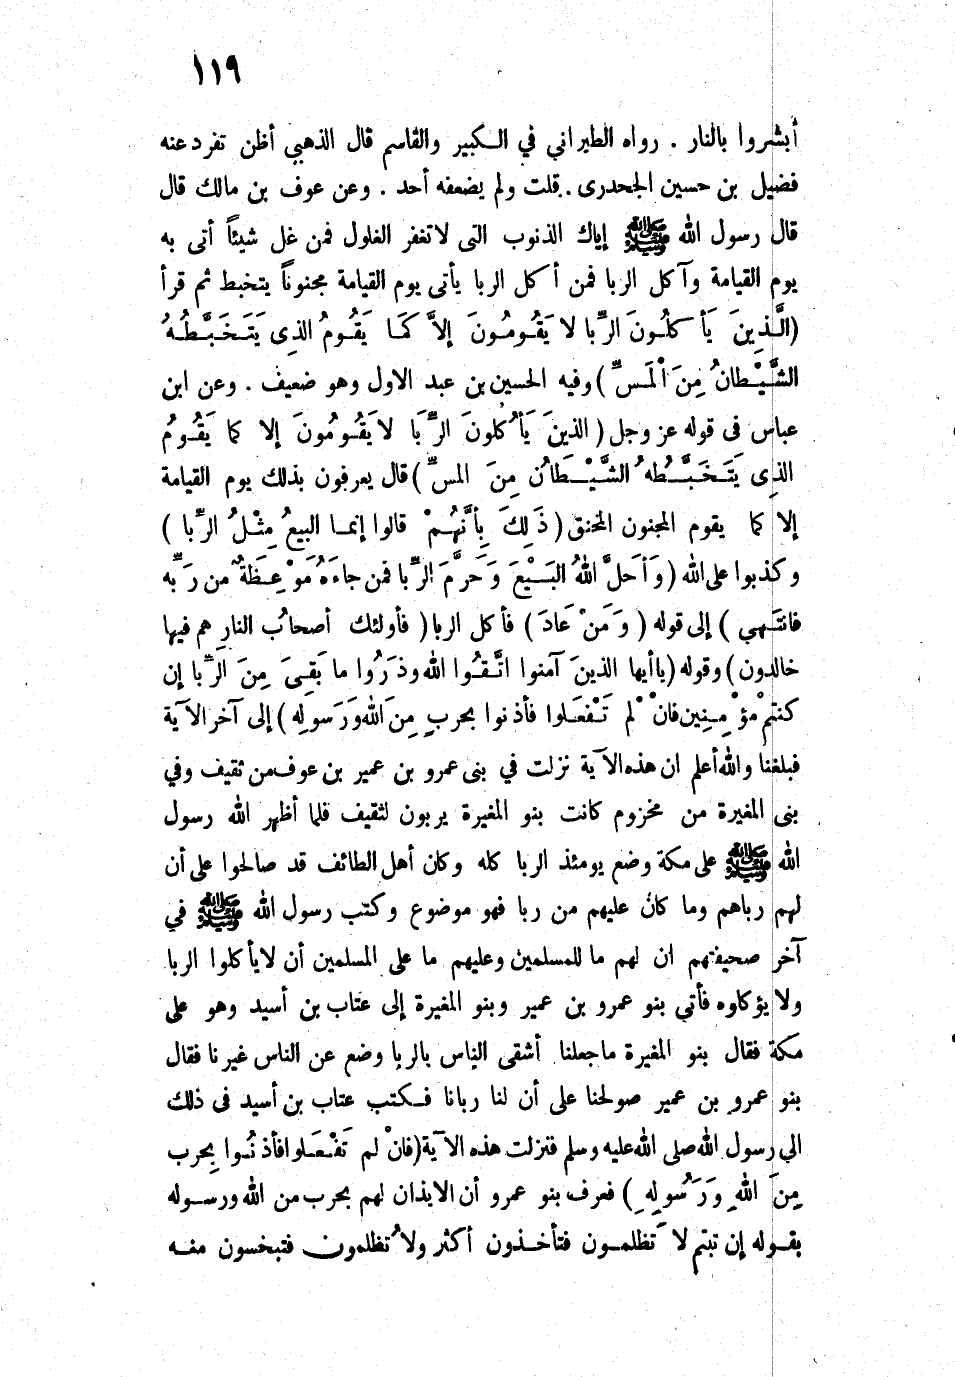 ١١٩
أبشروا بالنار . رواه الطبراني في الكبير والقاسم قال الذهبي أظن تفرد عنه
فضيل بن حسين الجحدرى . قلت ولم يضعفه أحد . وعن عوف بن مالك قال
قال رسول الله ﷺ إياك الذنوب التى لا تغفر الغلول فمن غل شيئاً أتى به
يوم القيامة وآكل الربا فمن أكل الربا يأتى يوم القيامة مجنوناً يتخبط ثم قرأ
(الَّذِينَ يَأكلُونَ الرِّبا لا يَقُومُونَ إلاَّ كَمَا يَقُومُ الذِى يَتَخَبَّطُهُ
الشَّيْطانُ مِنَ الْمَسِّ ) وفيه الحسين بن عبد الاول وهو ضعيف . وعن ابن
عباس فى قوله عز وجل ( الذينَ يَأكُلونَ الرِّبَا لا يَقُومُونَ إلا كما يَقُومُ
الذِى يَتَخَبَّطُه الشَّيْطَانُ مِنَ المسِّ ) قال يعرفون بذلك يوم القيامة
إلا كما يقوم المجنون المخنق ( ذَلِكَ بِأَنَّهُمْ قالوا إنما البيعُ مِثْلُ الرِّبا )
وكذبوا على الله ( وَأَحَلَّ اللهُ البَيْعَ وَحَرَّمَ الرِّبا فمن جاءَهُ مَوْعِظَةٌ من رَبِّه
فانتَهى ) إلى قوله ( وَمَنْ عَادَ ) فأكل الربا ( فأولئك أصحابُ النارِ هم فيها
خالدون ) وقوله ( يا أيها الذينَ آمنوا اتَّقُوا الله وذَرُوا ما بَقِىَ مِنَ الرِّبا إن
كنتمْ مؤْمِنِين فانْ لم تَفْعَلوا فأذنوا بحربٍ مِنَ الله وَرَسولِه ) إلى آخر الآية
فبلغنا والله أعلم ان هذه الآية نزلت في بنى عمرو بن عمير بن عوف من ثقيف وفي
بنى المغيرة من مخزوم كانت بنو المغيرة يربون لثقيف فلما أظهر الله رسول
الله ﷺ على مكة وضع يومئذ الربا كله وكان أهل الطائف قد صالحوا على أن
لهم رباهم وما كان عليهم من ربا فهو موضوع وكتب رسول الله ﷺ في
آخر صحيفتهم ان لهم ما للمسلمين وعليهم ما على المسلمين أن لا يأكلوا الربا
ولا يؤكاوه فأتي بنو عمرو بن عمير وبنو المغيرة إلى عتاب بن أسيد وهو على
مكة فقال بنو المغيرة ما جعلنا أشقى الناس بالربا وضع عن الناس غيرنا فقال
بنو عمرو بن عمير صولحنا على أن لنا ربانا فكتب عتاب بن أسيد فى ذلك
الي رسول الله صلى الله عليه وسلم فنزلت هذه الآية ( فانْ لم تَفْعَلوا فأذنُوا بِحرب
مِنَ اللهِ وَرَسُولِهِ ) فعرف بنو عمرو أن الايذان لهم بحرب من الله ورسوله
بقوله إن تبتم لا تَظلمون فتأخذون أكثر ولا تُظلمون فتبخسون منه